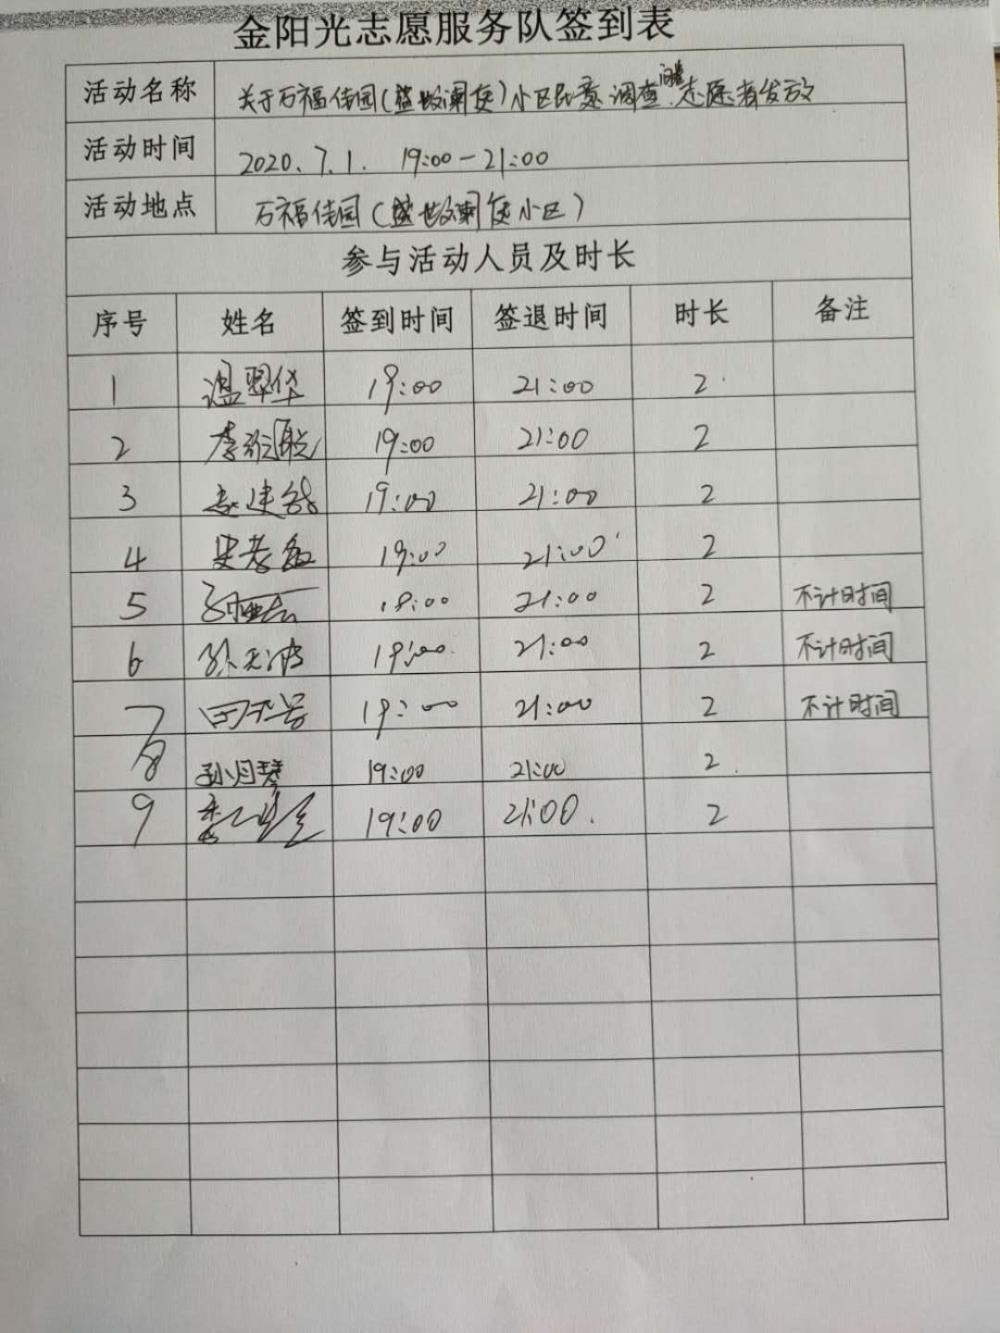 金阳光志愿服务队签到表
活动名称 关于万福佳园(盛世澜庭)小区民意调查问卷志愿者发放
活动时间 2020.7.1. 19:00-21:00
活动地点 万福佳园(盛世澜庭小区)
参与活动人员及时长
序号 姓名 签到时间 签退时间 时长 备注
1 温翠华 19:00 21:00 2
2 李 19:00 21:00 2
3 19:00 21:00 2
4 19:00 21:00 2
5 19:00 21:00 2 不计时间
6 孙天波 19:00 21:00 2 不计时间
7 19:00 21:00 2 不计时间
8 孙月琴 19:00 21:00 2
9 19:00 21:00 2